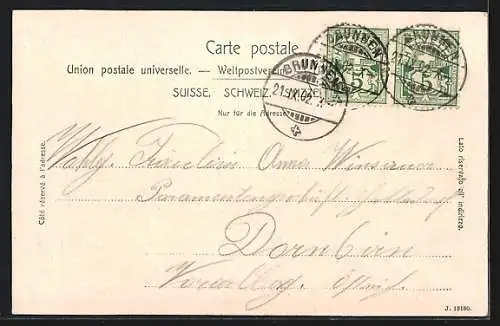 Carte postale.
Union postale universelle. — Weltpostverein
SUISSE. SCHWEIZ.
Nur für die Adresse.
BRUNNEN
BRUNNEN
BRUNNEN
21.IX.02.
5
5
Côté réservé à l'adresse.
Lato riservato all' indirizzo.
Fräulein Anna
Dornbirn
Vorarlberg.
J. 13190.